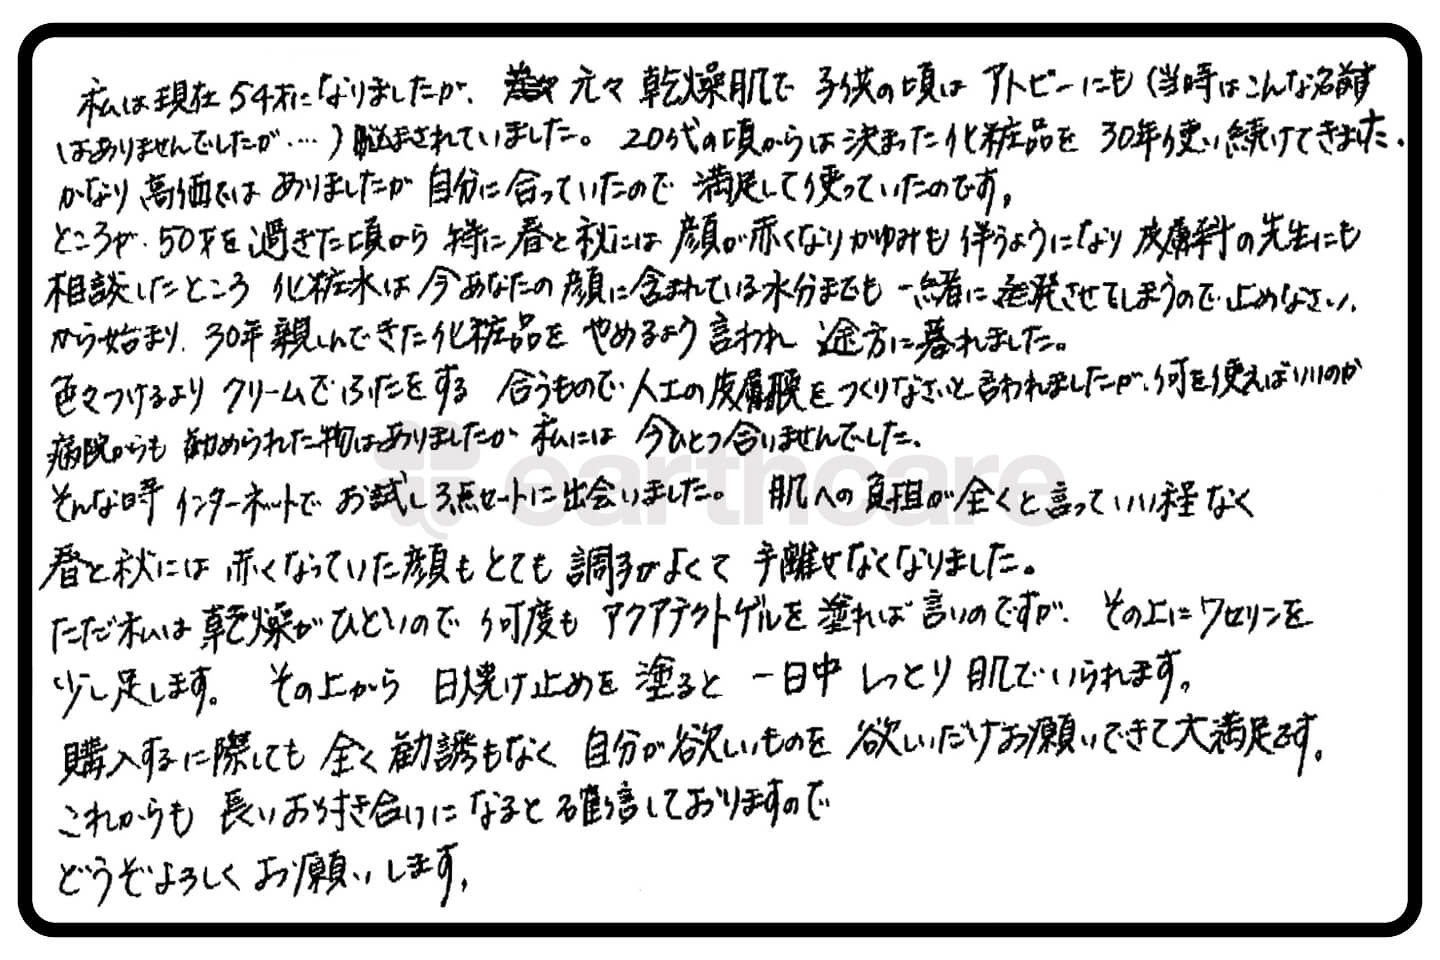 私は現在54才になりましたが、元々 乾燥肌で 子供の頃は アトピーにも(当時はこんな名前すら
はありませんでしたが‥‥)悩まされていました。20代の頃からは決まった化粧品を 30年使い続けてきました。
かなり高価では ありましたが 自分に合っていたので 満足して使っていたのです。
ところが、50才を過ぎた頃から 特に春と秋には 顔が赤くなりかゆみも 伴うようになり 皮膚科の先生にも
相談したところ 化粧水は今あなたの顔に含まれている水分までも 一緒に蒸発させてしまうので止めなさい、
から始まり、30年親しんできた化粧品を やめるよう言われ 途方に暮れました。
色々つけるより クリームでふたをする 合うもので人工の皮膚膜をつくりなさいと言われましたが、何を使えばいいのか
病院からも 勧められた物はありましたが 私には 今ひとつ合いませんでした。
そんな時 インターネットで お試し3点セットに出会いました。 肌への負担が全くと言っていい程なく
春と秋には 赤くなっていた顔もとても 調子がよくて 手離せなくなりました。
ただ私は乾燥がひどいので 何度も アクアテクトゲルを塗れば言いのですが、その上にワセリンを
少し足します。 その上から 日焼け止めを塗ると 一日中 しっとり 肌でいられます。
購入するに際しても 全く勧誘もなく 自分が欲しいものを 欲しいだけお願いできて大満足です。
これからも 長いお付き合いになると確信しておりますので
どうぞよろしくお願いします。
earthcare